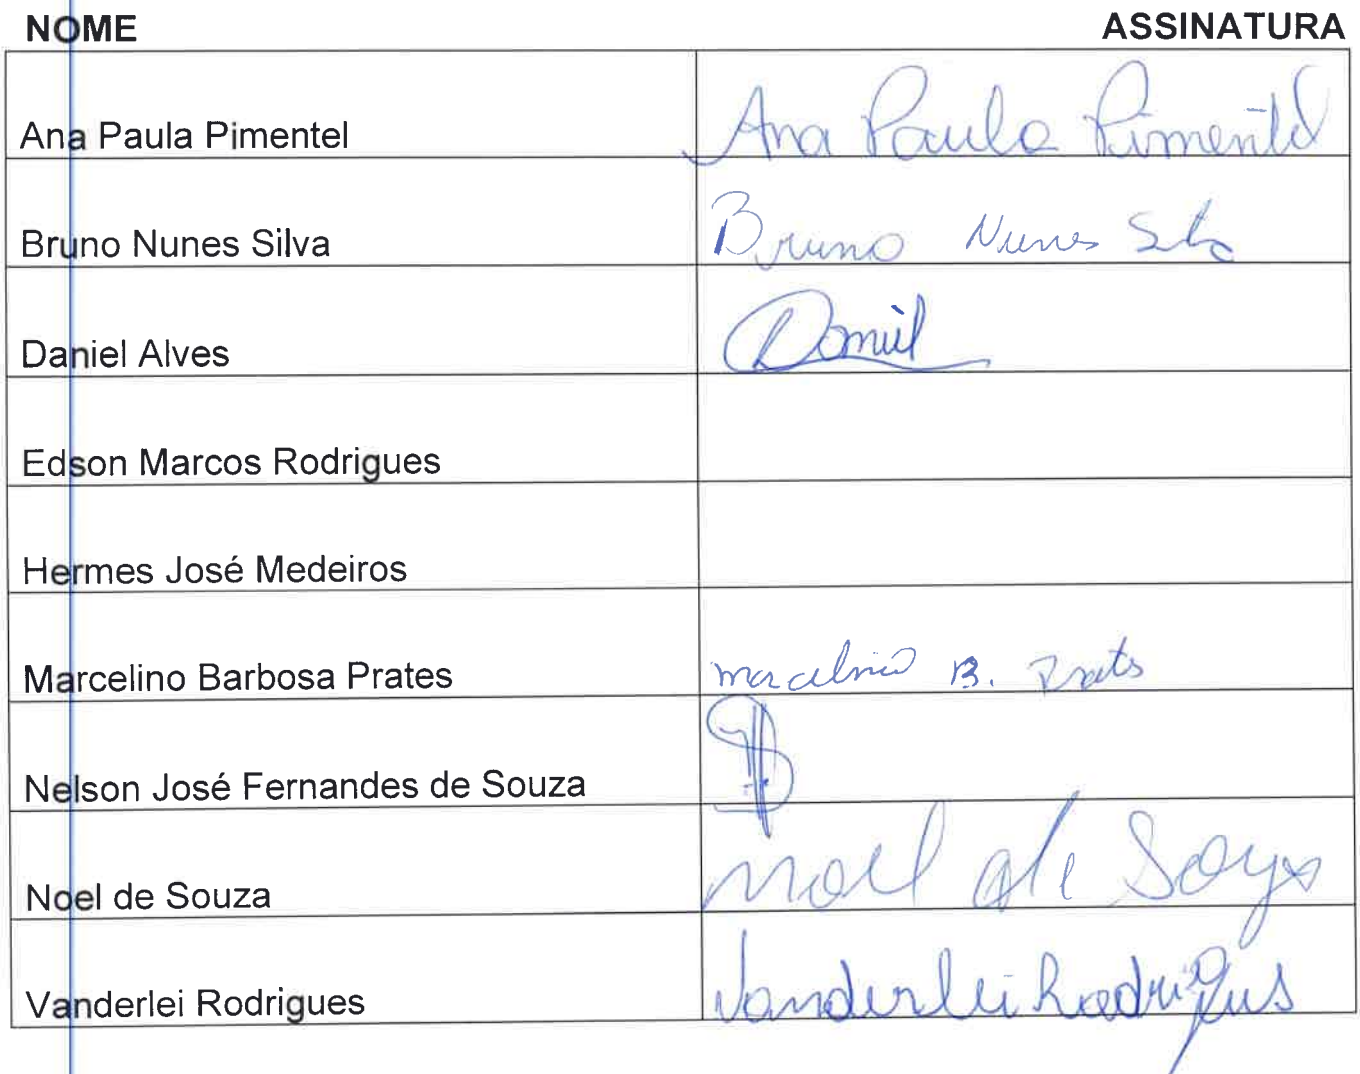 NOME ASSINATURA
Ana Paula Pimentel Ana Paula Pimentel
Bruno Nunes Silva Bruno Nunes Silva
Daniel Alves Daniel
Edson Marcos Rodrigues
Hermes José Medeiros
Marcelino Barbosa Prates Marcelino B. Prates
Nelson José Fernandes de Souza
Noel de Souza Noel de Souza
Vanderlei Rodrigues Vanderlei Rodrigues